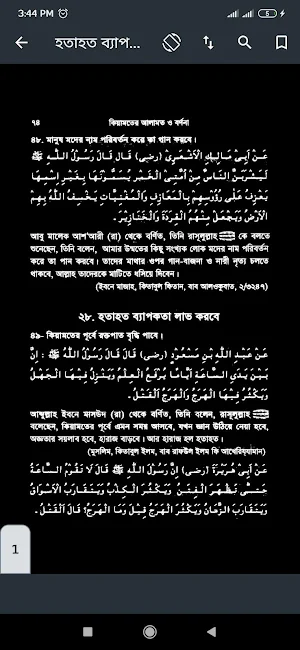 3:44 PM
5
হতাহত ব্যাপ...
৭৪
কিয়ামতের আলামত ও বর্ণনা
৪৮. মানুষ মদের নাম পরিবর্তন করে তা পান করবে।
عَنْ اَبِيْ مَالِكِ الْاَشْعَرِيِّ (رضى) قَالَ قَالَ رَسُوْلُ اللّٰهِ ﷺ
لَيَشْرَبَنَّ النَّاسُ مِنْ اُمَّتِى الْخَمْرَ يُسَمُّوْنَهَا بِغَيْرِ اِسْمِهَا
يُعْزَفُ عَلٰى رُؤُوْسِهِمْ بِالْمَعَازِفِ وَالْمُغَنِّيَاتِ يَخْسِفُ اللّٰهُ بِهِمُ
الْاَرْضَ وَيَجْعَلُ مِنْهُمُ الْقِرَدَةَ وَالْخَنَازِيْرَ.
আবু মালেক আশ'আরী (রা) থেকে বর্ণিত, তিনি রাসূলুল্লাহ ﷺ কে বলতে
শুনেছেন, তিনি বলেন, আমার উম্মতের কিছু সংখ্যক লোক মদের নাম পরিবর্তন
করে তা পান করবে। তাদের মাথার ওপর গান-বাজনা ও নারী নৃত্য চলতে
থাকবে, আল্লাহ তাদেরকে মাটিতে ধসিয়ে দিবেন।
(ইবনে মাজাহ, কিতাবুল ফিতান, বাব আলওকুবাত, ২/৩২৪৭)
২৮. হতাহত ব্যাপকতা লাভ করবে
৪৯- কিয়ামতের পূর্বে রক্তপাত বৃদ্ধি পাবে।
عَنْ عَبْدِ اللّٰهِ بْنِ مَسْعُوْدٍ (رضى) قَالَ قَالَ رَسُوْلُ اللّٰهِ ﷺ : اِنَّ
بَيْنَ يَدَىِ السَّاعَةِ اَيَّامًا يُرْفَعُ الْعِلْمُ وَيَنْزِلُ فِيْهَا الْجَهْلُ
وَيَكْثُرُ فِيْهَا الْهَرْجُ وَالْهَرْجُ الْقَتْلُ.
আব্দুল্লাহ ইবনে মাসউদ (রা) থেকে বর্ণিত, তিনি বলেন, রাসূলুল্লাহ ﷺ
বলেছেন, কিয়ামতের পূর্বে এমন সময় আসবে, যখন জ্ঞান উঠিয়ে নেয়া হবে,
অজ্ঞতার সয়লাব হবে, হারাজ বাড়বে। আর হারাজ হল হতাহত।
(মুসলিম, কিতাবুল ইলম, বাব রাফউল ইলম ফি আখেরিয্যামান)
عَنْ اَبِيْ هُرَيْرَةَ (رضى) اِنَّ رَسُوْلَ اللّٰهِ ﷺ قَالَ لَا تَقُوْمُ السَّاعَةُ
حَتّٰى تَظْهَرَ الْفِتَنُ وَيَكْثُرَ الْكِذْبُ وَيَتَقَارَبَ الْاَسْوَاقُ
وَيَتَقَارَبَ الزَّمَانُ وَيَكْثُرَ الْهَرْجُ قِيْلَ وَمَا الْهَرْجُ؟ قَالَ الْقَتْلُ.
1